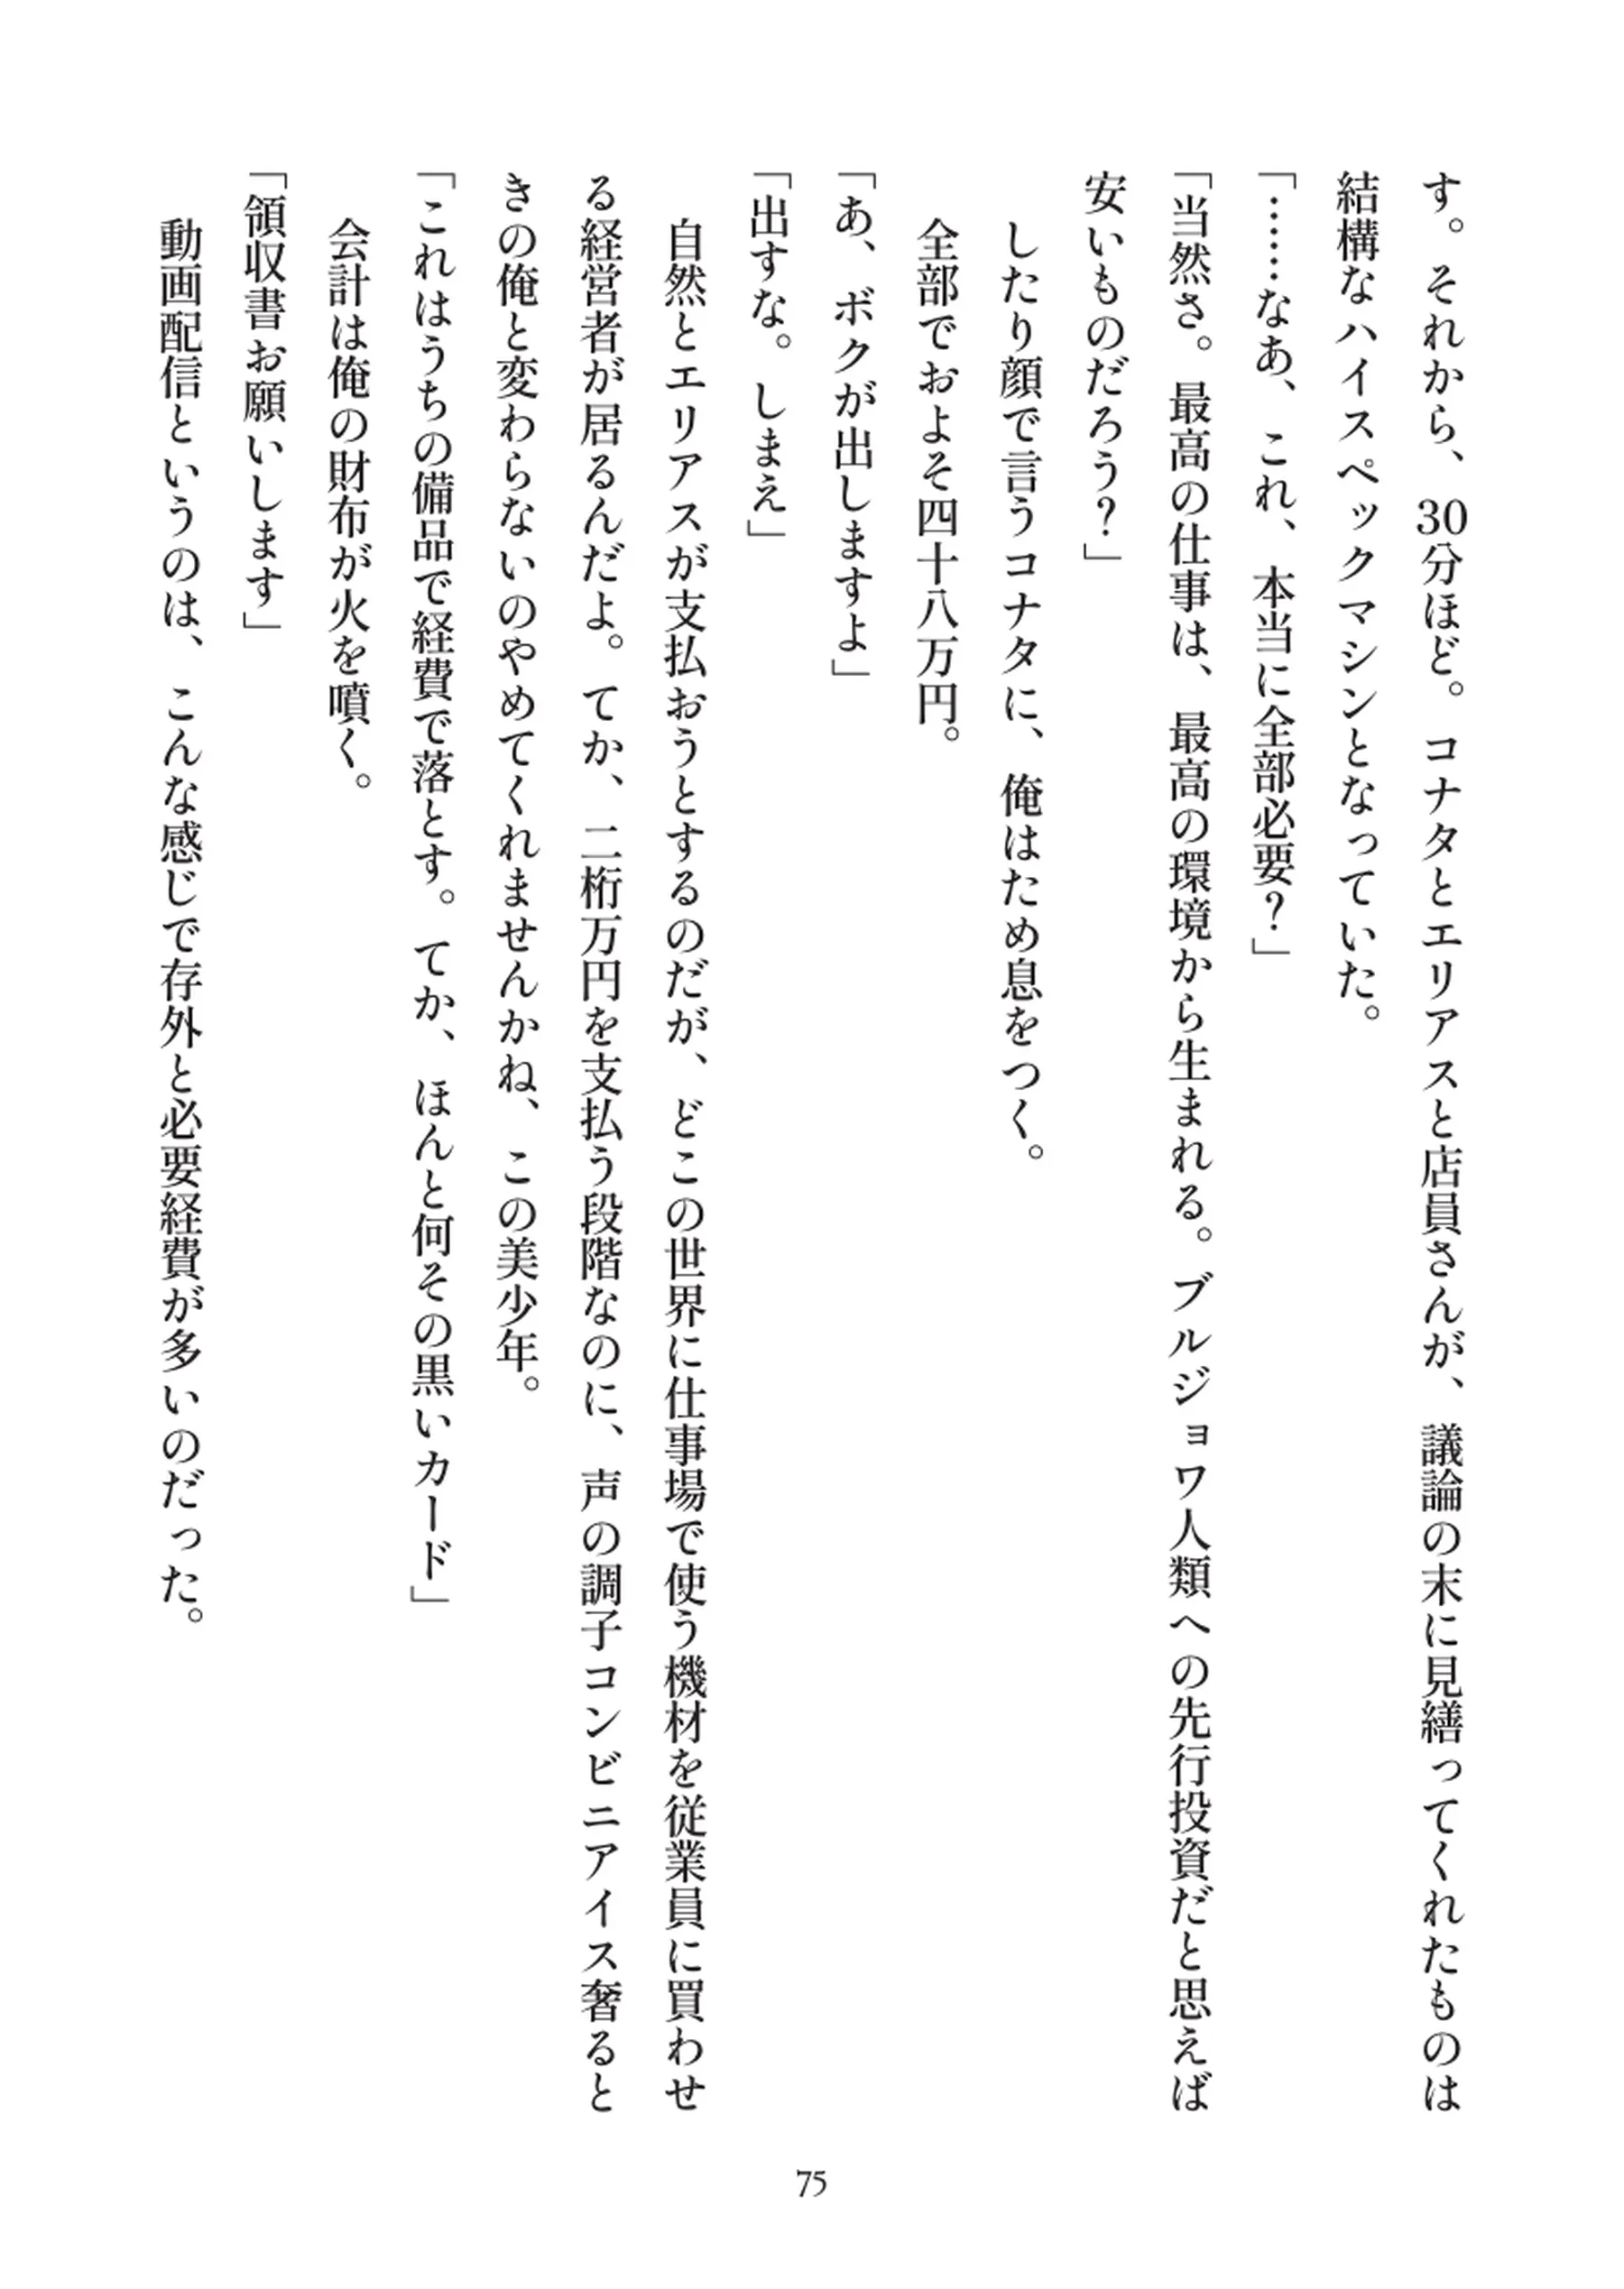 す。それから、30分ほど。コナタとエリアスと店員さんが、議論の末に見繕ってくれたものは
結構なハイスペックマシンとなっていた。
「……なあ、これ、本当に全部必要？」
「当然さ。最高の仕事は、最高の環境から生まれる。ブルジョワ人類への先行投資だと思えば
安いものだろう？」
　したり顔で言うコナタに、俺はため息をつく。
　全部でおよそ四十八万円。
「あ、ボクが出しますよ」
「出すな。しまえ」
　自然とエリアスが支払おうとするのだが、どこの世界に仕事場で使う機材を従業員に買わせ
る経営者が居るんだよ。てか、二桁万円を支払う段階なのに、声の調子コンビニアイス奢ると
きの俺と変わらないのやめてくれませんかね、この美少年。
「これはうちの備品で経費で落とす。てか、ほんと何その黒いカード」
　会計は俺の財布が火を噴く。
「領収書お願いします」
　動画配信というのは、こんな感じで存外と必要経費が多いのだった。
75